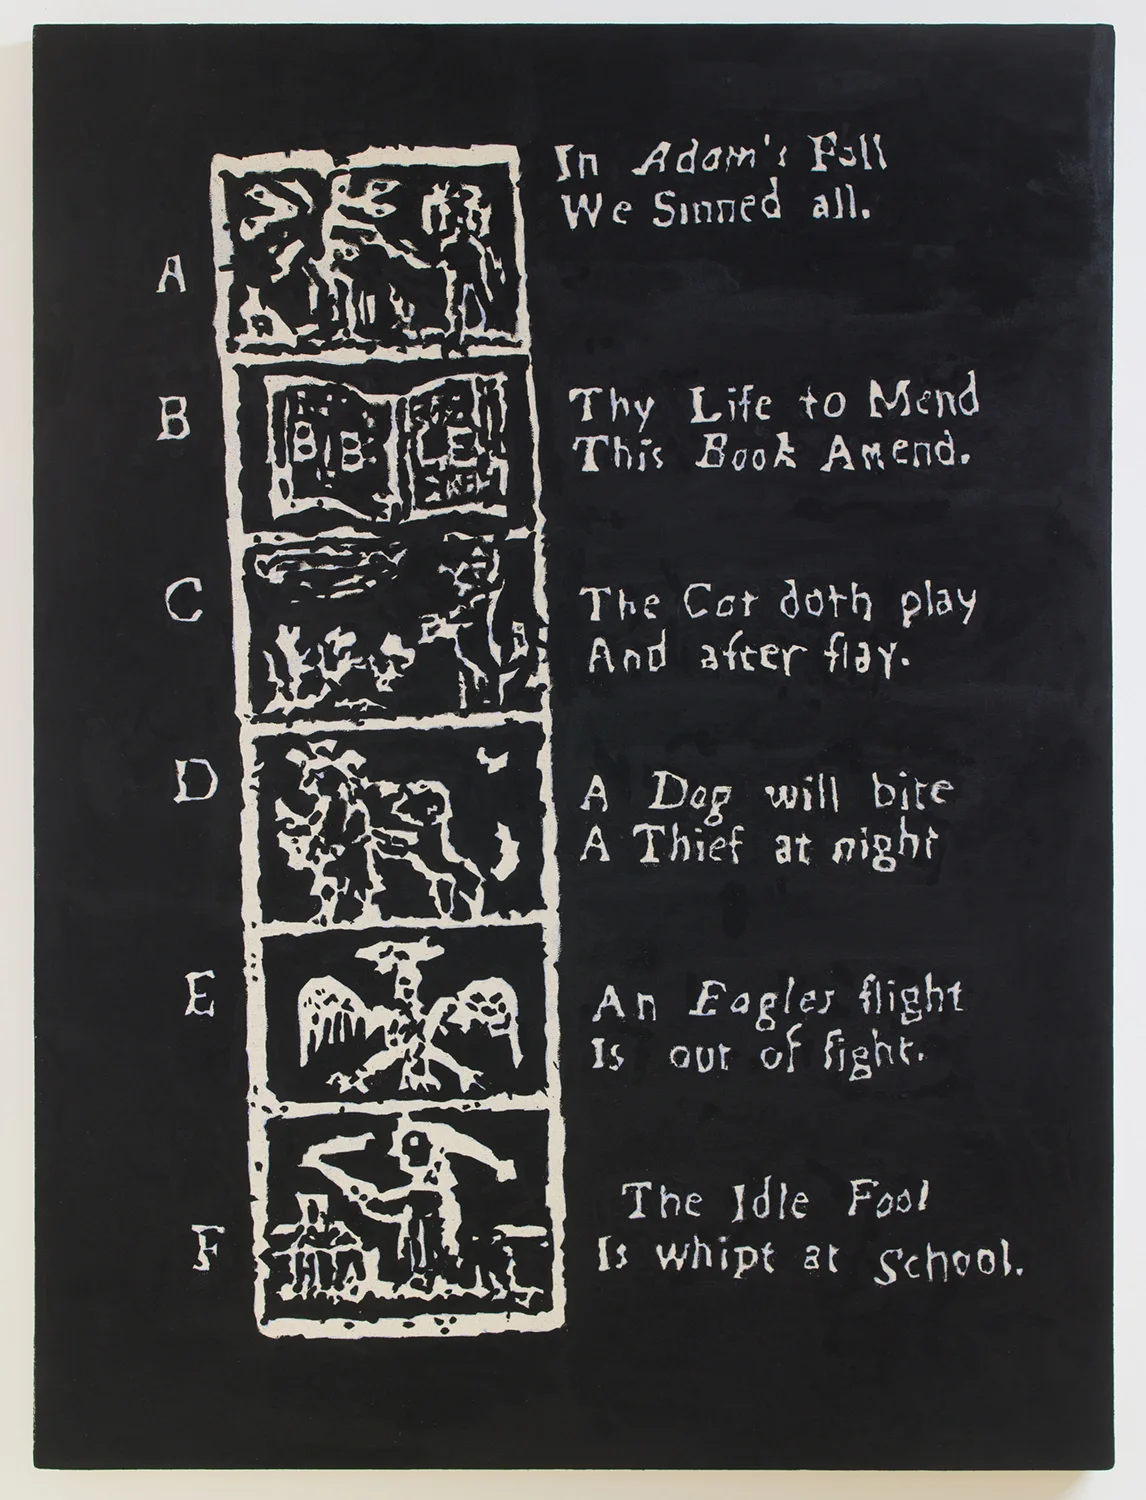 In Adam's Fall
We Sinned all.
A
B
Thy Life to Mend
This Book Amend.
BIB LE
C
The Cat doth play
And after flay.
D
A Dog will bite
A Thief at night
E
An Eagles flight
Is out of fight.
The Idle Fool
F
Is whipt at School.